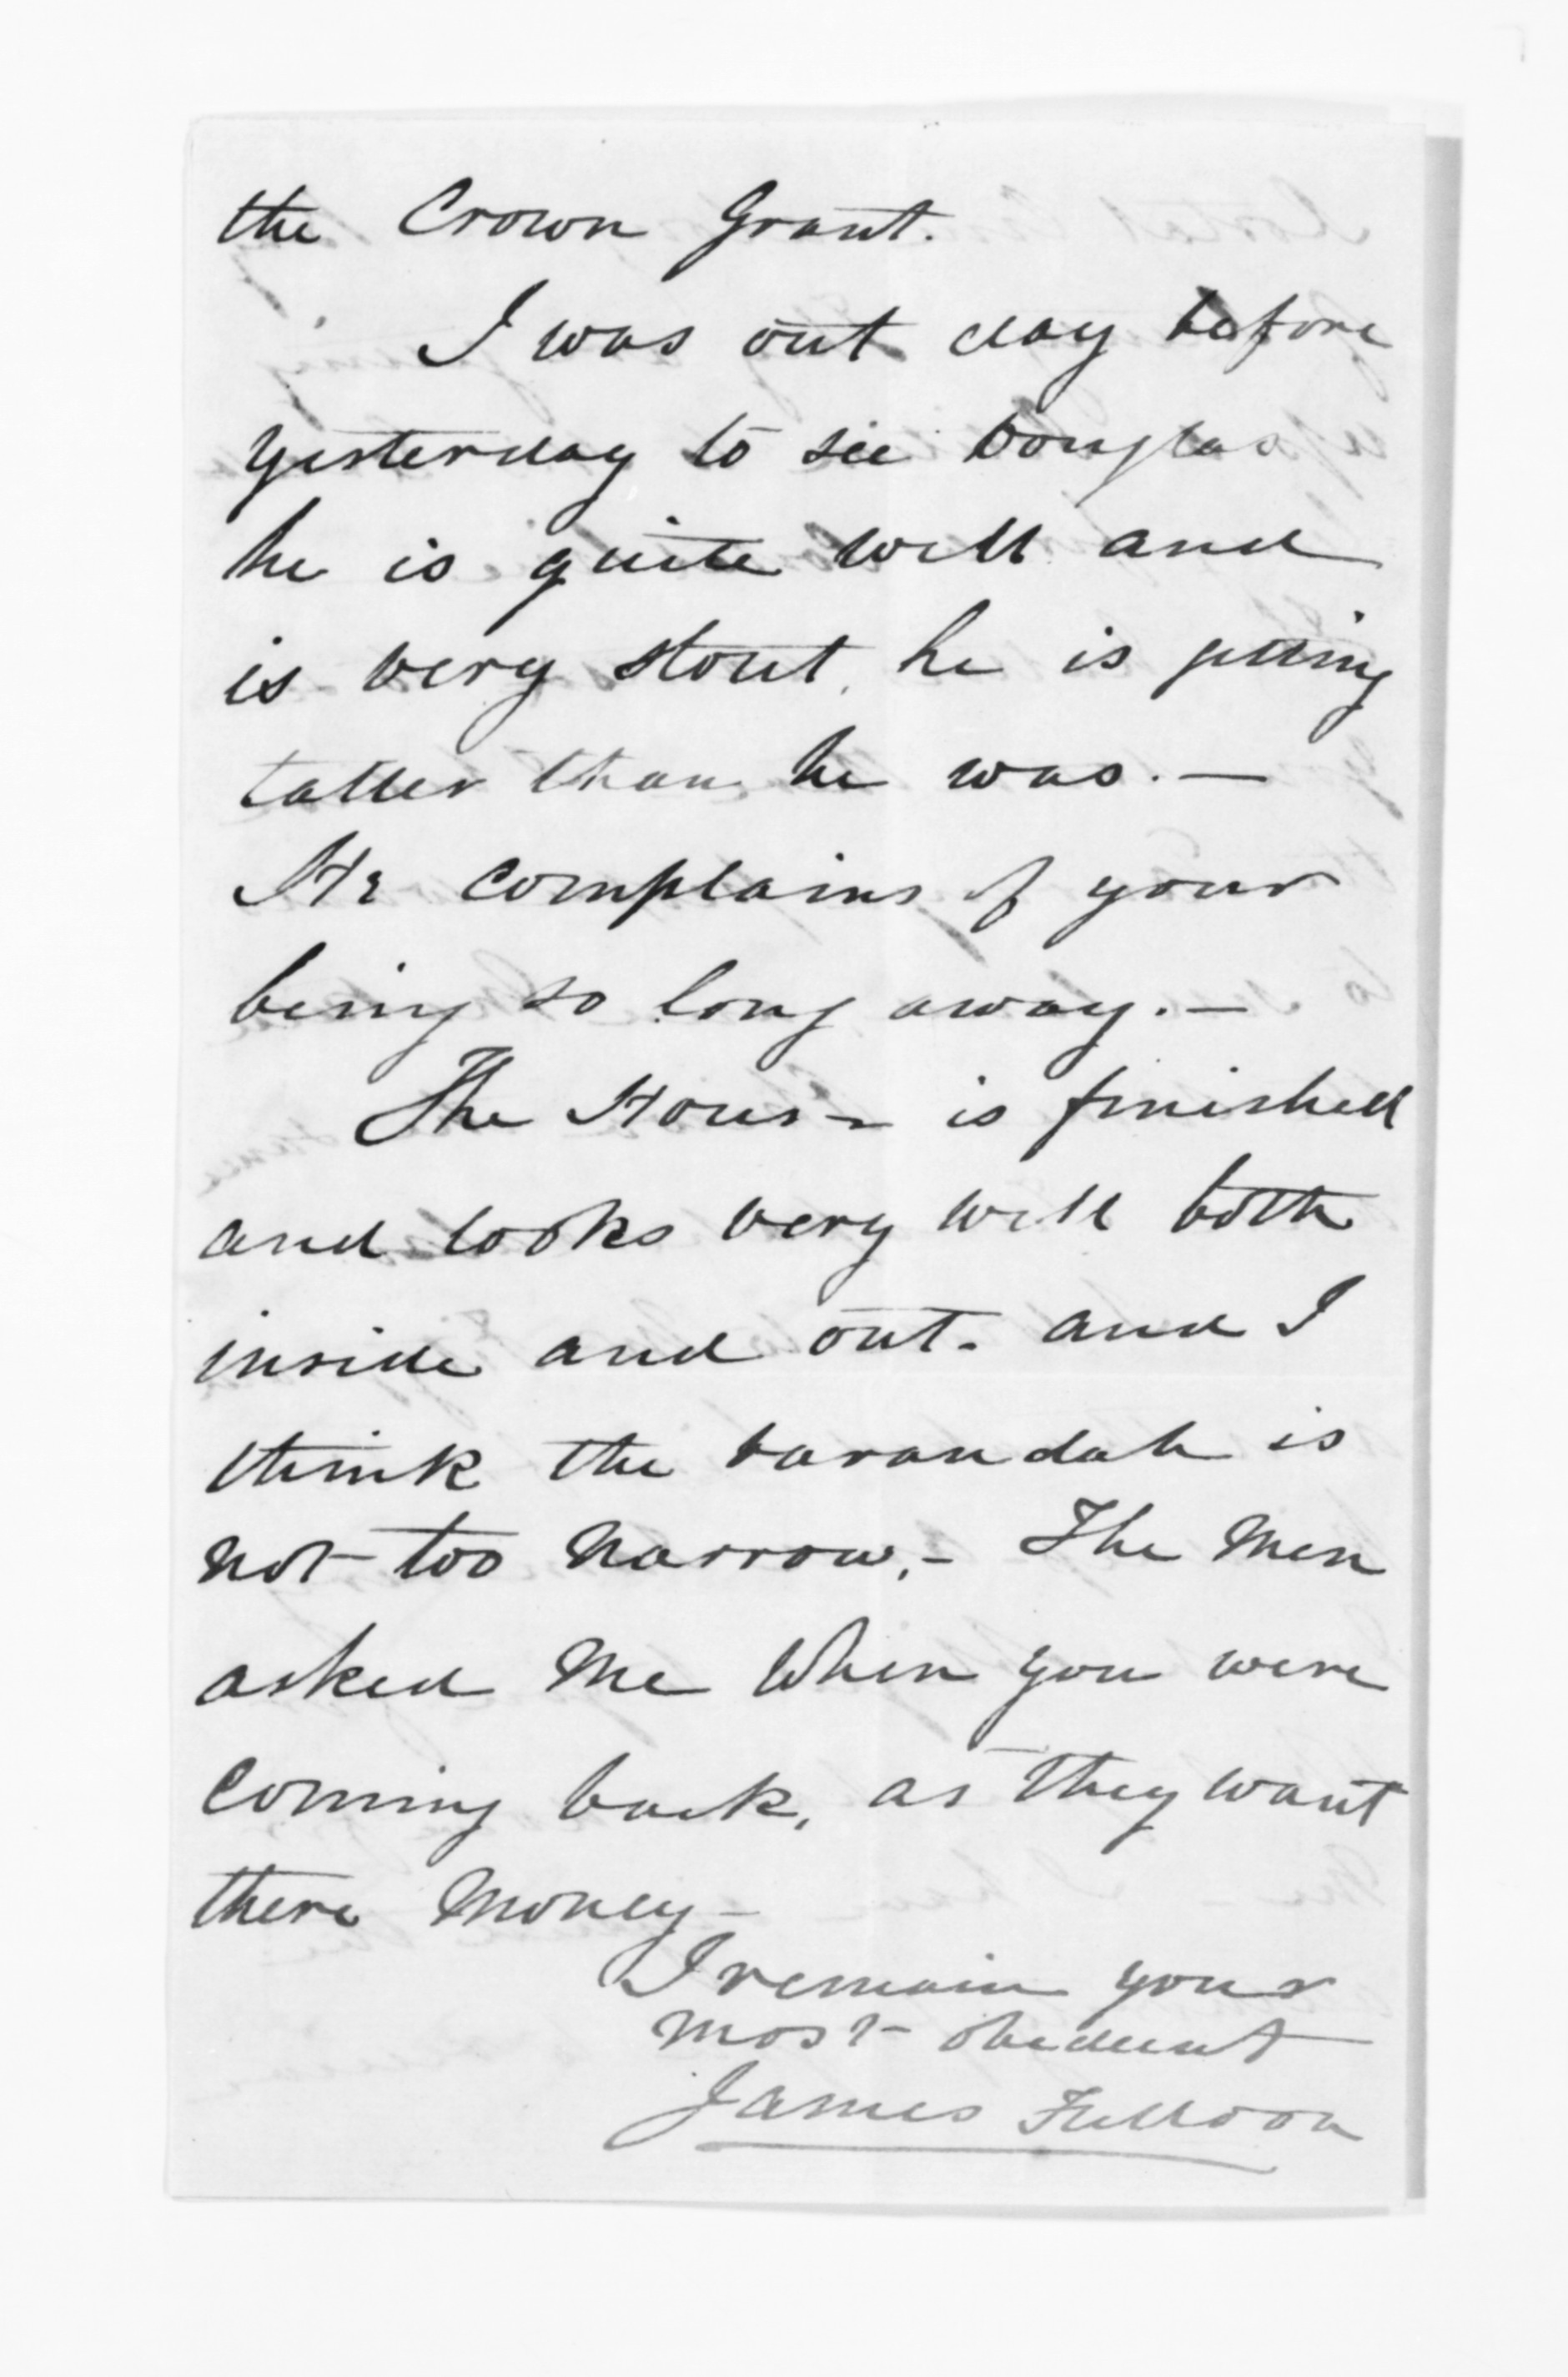 the Crown Grant.
I was out day before
yesterday to see Douglas
he is quite well and
is very stout, he is getting
taller than he was. —
He complains of your
being so long away. —
The House is finished
and looks very well both
inside and out. and I
think the varandah is
not too narrow, - The Men
asked Me When you were
coming back, as they want
there Money -
I remain your
most obedient
James Fulloon